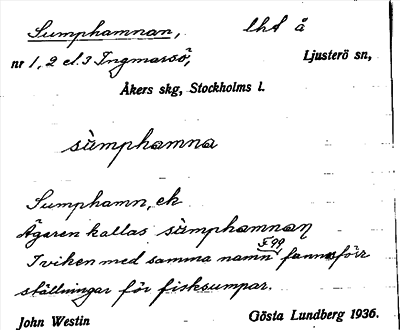 Sumphamnan, lht å
nr 1, 2 el. 3 Ingmarsö, Ljusterö sn,
Åkers skg, Stockholms l.
sùmphamna
Sumphamn, ek
Ägaren kallas sùmphamnaņ
F 99,
I viken med samma namn fanns förr
ställningar för fisksumpar.
John Westin Gösta Lundberg 1936.